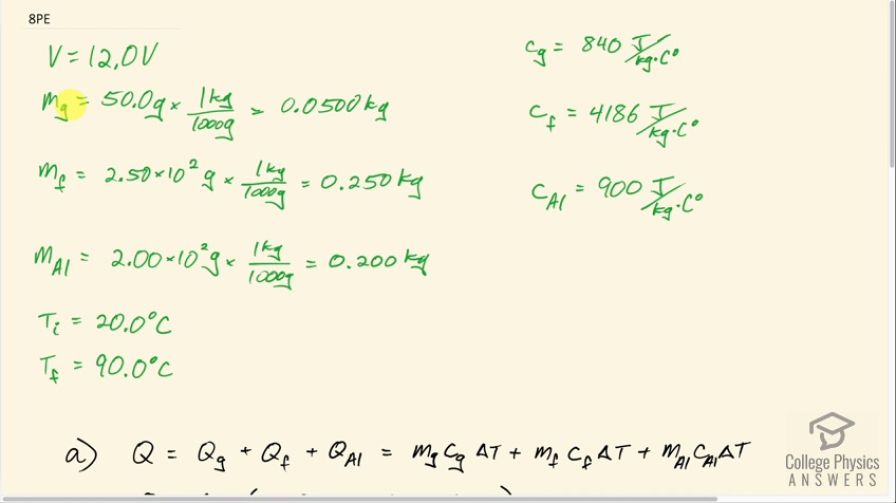 8PE
V = 12.0V
m_g = 50.0g × 1kg/1000g = 0.0500 kg
m_f = 2.50×10² g × 1kg/1000g = 0.250 kg
m_Al = 2.00×10² g × 1kg/1000g = 0.200 kg
T_i = 20.0°C
T_f = 90.0°C
c_g = 840 J/kg·C°
c_f = 4186 J/kg·C°
c_Al = 900 J/kg·C°
a) Q = Q_g + Q_f + Q_Al = m_g c_g ΔT + m_f c_f ΔT + m_Al c_Al ΔT
College Physics
ANSWERS